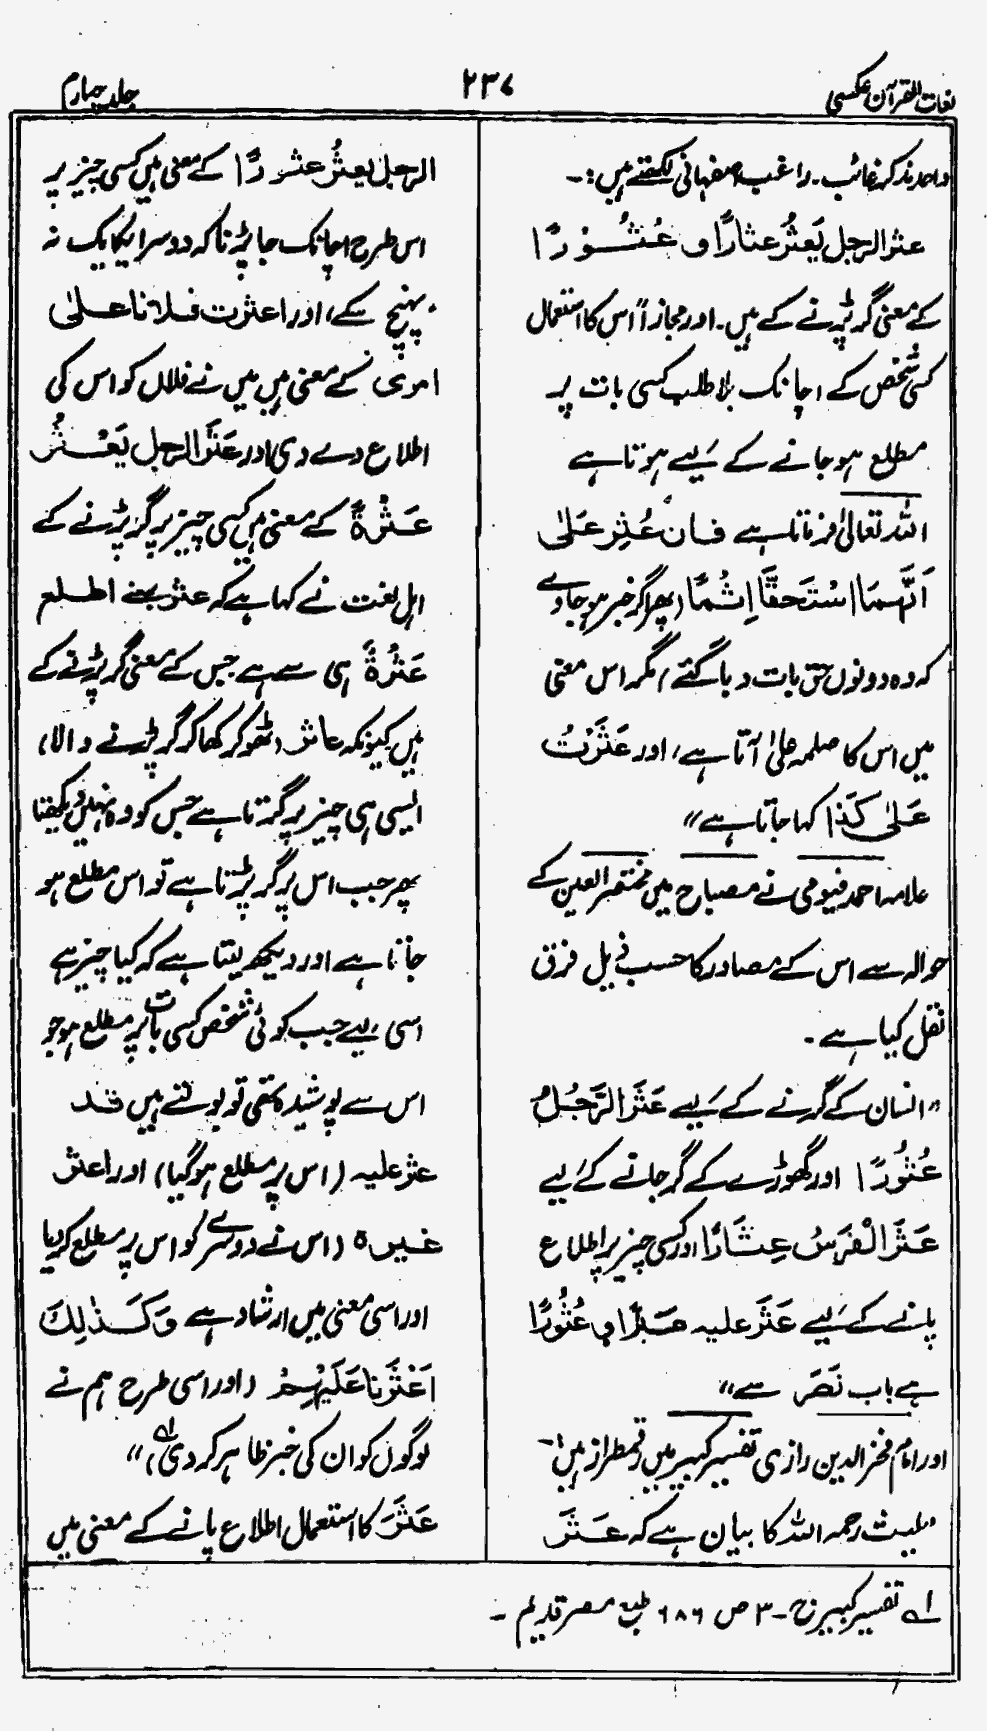 لغات القرآن عکسی
۲۳۷
جلد چہارم
واحد مذکر غائب۔ راغب اصفہانی لکھتے ہیں:۔
عثر الرجل یَعثُر عثارًا و عُثُـوْرًا
کے معنی گر پڑنے کے ہیں۔ اور مجازاً اس کا استعمال
کسی شخص کے اچانک بلا طلب کسی بات پر
مطلع ہو جانے کے لیے ہوتا ہے
اللہ تعالیٰ فرماتا ہے فان عُثِر عَلیٰ
اَنَّهمَا اسْتَحقَّا اِثْمًا (پھر اگر خبر ہو جاوے
کہ وہ دونوں حق بات دبا گئے) مگر اس معنی
میں اس کا صلہ علیٰ آتا ہے، اور عَثَرْتُ
عَلیٰ کَذَا کہا جاتا ہے"
علامہ احمد فیومی نے مصباح میں مختصر العین کے
حوالہ سے اس کے مصادر کا حسب ذیل فرق
نقل کیا ہے۔
"انسان کے گرنے کے لیے عَثَرَ الرَّجُلُ
عُثُورًا اور گھوڑے کے گر جانے کے لیے
عَثَرَ الْفَرَسُ عِثَارًا اور کسی چیز پر اطلاع
پانے کے لیے عَثَرَ علیہ عَثْرًا و عُثُورًا
ہے باب نَصَرَ سے"
اور امام فخر الدین رازی تفسیر کبیر میں رقمطراز ہیں:۔
"لیث رحمہ اللہ کا بیان ہے کہ عَثَرَ
الرجل یعثُر عثورًا کے معنی ہیں کسی چیز پر
اس طرح اچانک جا پڑنا کہ دوسرا یکایک نہ
پہنچ سکے، اور اعثرت فلانا علیٰ
امری کے معنی ہیں میں نے فلاں کو اس کی
اطلاع دے دی اور عَثَرَ الرجل یَعْثُرُ
عَثْرَةً کے معنی ہیں کسی چیز پر گر پڑنے کے
اہل لغت نے کہا ہے کہ عثر بمعنے اطلع
عَثْرَةً ہی سے ہے جس کے معنی گر پڑنے کے
ہیں کیونکہ عاثر (ٹھوکر کھا کر گر پڑنے والا)
ایسی ہی چیز پر گرتا ہے جس کو وہ نہیں دیکھتا
پھر جب اس پر گر پڑتا ہے تو اس مطلع ہو
جاتا ہے اور دیکھ لیتا ہے کہ کیا چیز ہے
اسی لیے جب کوئی شخص کسی بات پر مطلع ہو جو
اس سے پوشیدہ تھی تو بولتے ہیں قد
عثر علیہ (اس پر مطلع ہو گیا) اور اعثر
غیرہ (اس نے دوسرے کو اس پر مطلع کر دیا
اور اسی معنی میں ارشاد ہے وَكَذٰلِكَ
اَعْثَرْنَا عَلَيْهِمْ (اور اسی طرح ہم نے
لوگوں کو ان کی خبر ظاہر کر دی)، ؂۱"
عَثَرَ کا استعمال اطلاع پانے کے معنی میں
؂۱ تفسیر کبیر ج۔ ۳ ص ۶۸۶ طبع مصر قدیم۔